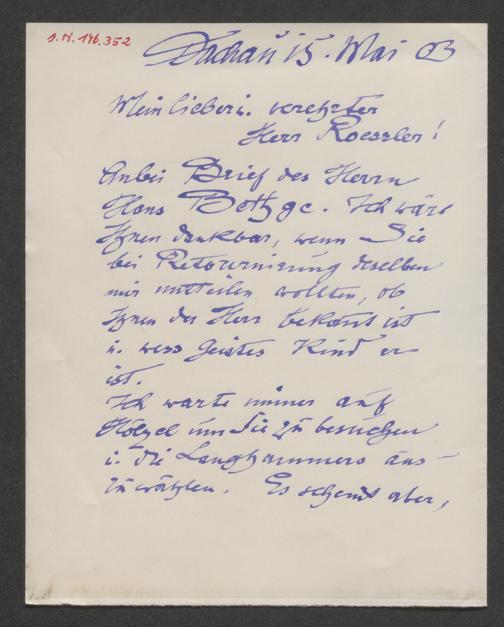 J.N. 146.352
Dachau 15. Mai 03
Mein lieber u. verehrter
Herr Roessler!
Anbei Brief des Herrn
Hans. Ich wäre
Ihnen dankbar, wenn Sie
bei Retournierung desselben
mir mitteilen wollten, ob
Ihnen der Herr bekannt ist
u. wess Geistes Kind er
ist.
Ich warte immer auf
Hölzel um Sie zu besuchen
u. die Langhammers aus-
zuwählen. Es scheint aber,